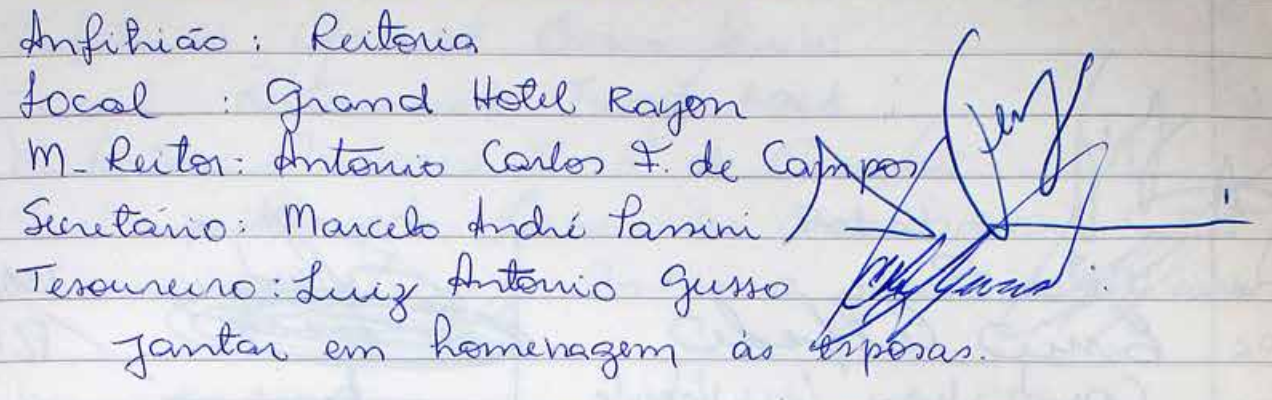 Anfitrião: Reitoria
Local : Grand Hotel Rayon
M. Reitor: Antonio Carlos F. de Campos
Secretário: Marcelo André Passini
Tesoureiro: Luiz Antonio Gusso
Jantar em homenagem às esposas.